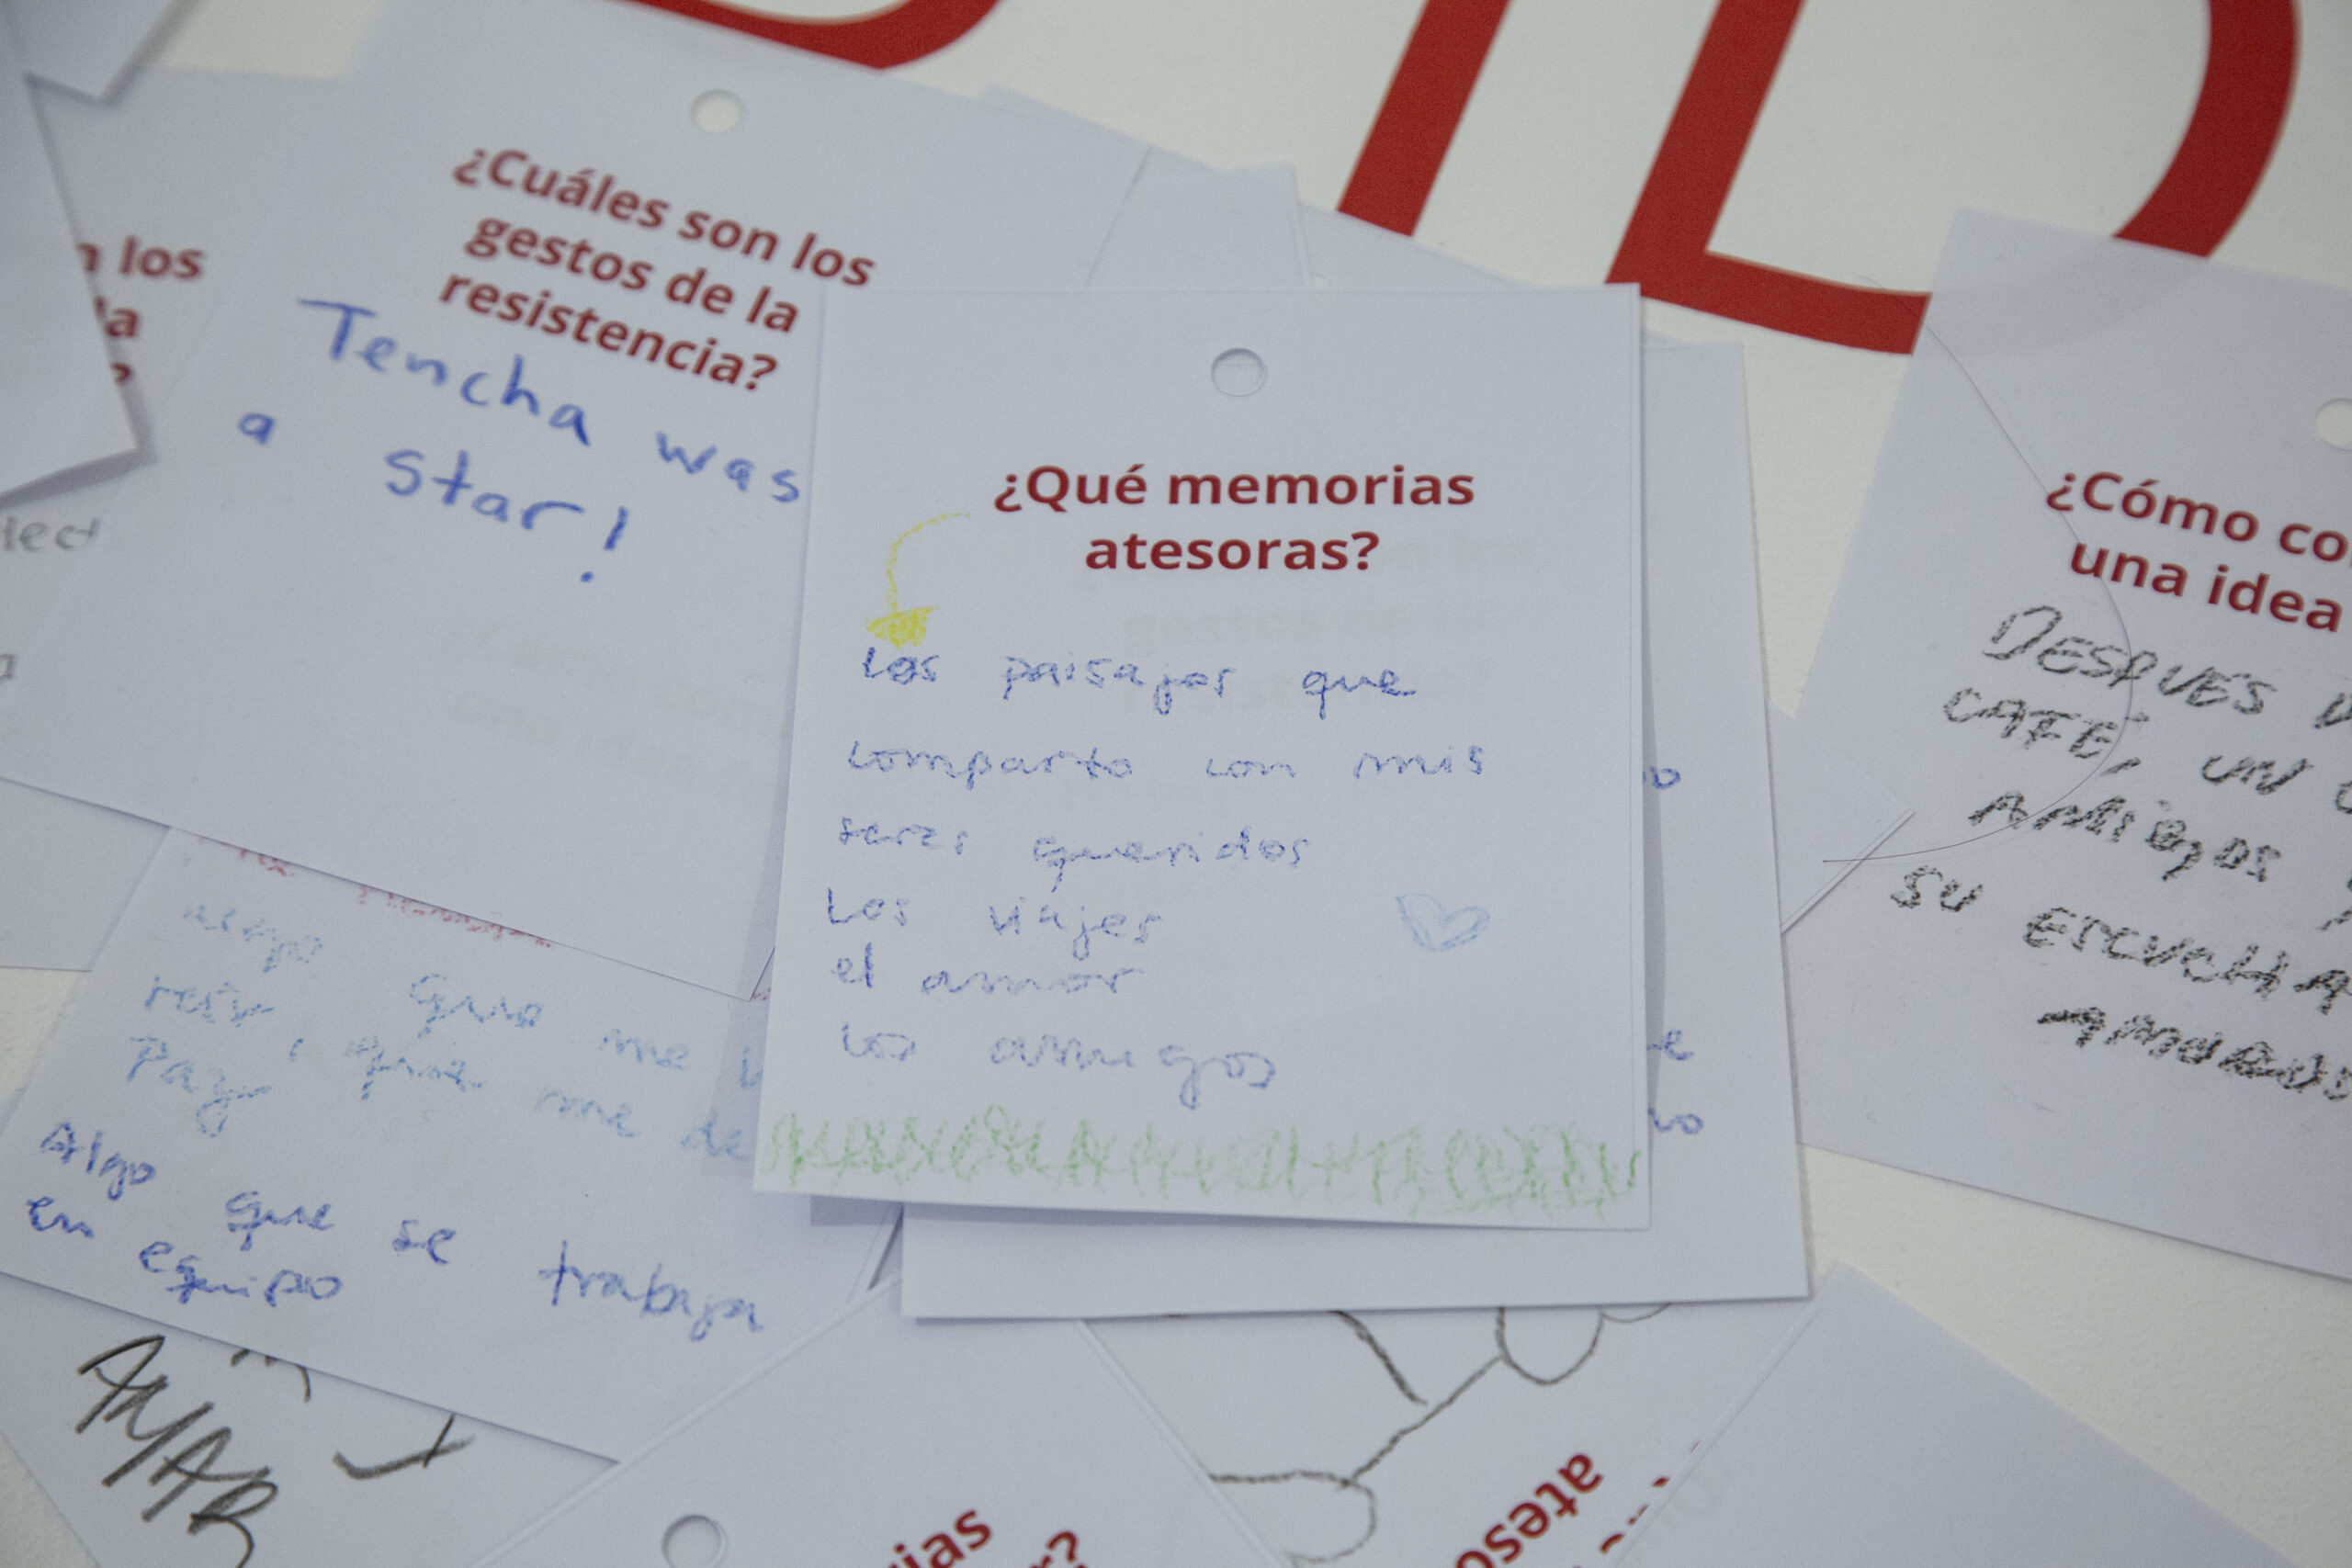 ¿Cuáles son los
gestos de la
resistencia?
Tencha was
a star!
n los
la
?
¿Qué memorias
atesoras?
Los paisajes que
comparto con mis
seres queridos
Los viajes
el amor
los amigos
¿Cómo co
una idea
DESPUÉS
CAFÉ, UN
AMIGOS
SU ESCUCHA
AMOROS
que me
que me da
Algo que se trabaja
en equipo
ias
r?
ateso